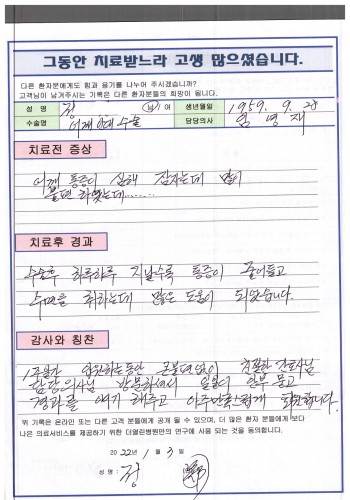 그동안 치료받느라 고생 많으셨습니다.
다른 환자분에게도 힘과 용기를 나누어 주시겠습니까?
고객님이 남겨주시는 기록은 다른 환자분들의 희망이 됩니다.
성 명 정 남 여 생년월일 1959. 9. 28
수술명 어깨 수술 담당의사 염 영 재
치료전 증상
어깨 통증이 심해 잠자는데 많이
불편 하였는데.......
치료후 경과
수술후 하루하루 지날수록 통증이 줄어들고
수면을 취하는데 많은 도움이 되었습니다.
감사와 칭찬
1주일간 입원하는동안 친절한 간호사님
의사님 방문하셔서 일일이 안부 묻고
경과를 얘기 해주고 아주만족스럽게
위 기록은 온라인 또는 다른 고객 분들에게 공개 될 수 있으며, 더 많은 환자 분들에게 보다
나은 의료서비스를 제공하기 위한 더열린병원만의 연구에 사용 되는 것을 동의합니다.
2022년 1 월 3 일
성 명 : 정